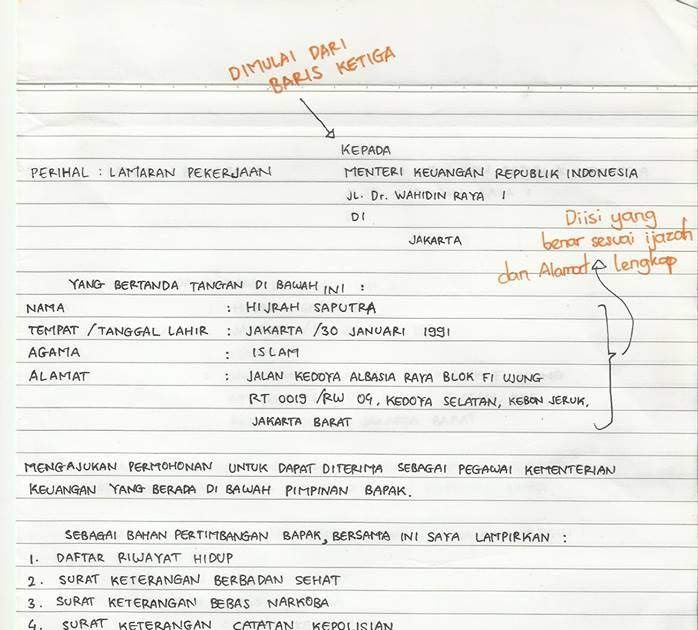 DIMULAI DARI
BARIS KETIGA
KEPADA
PERIHAL : LAMARAN PEKERJAAN MENTERI KEUANGAN REPUBLIK INDONESIA
JL. Dr. WAHIDIN RAYA 1
DI
JAKARTA
Diisi yang
benar sesuai ijazah
dan Alamat lengkap
YANG BERTANDA TANGAN DI BAWAH INI :
NAMA : HIJRAH SAPUTRA
TEMPAT / TANGGAL LAHIR : JAKARTA / 30 JANUARI 1991
AGAMA : ISLAM
ALAMAT : JALAN KEDOYA ALBASIA RAYA BLOK F1 UJUNG
RT 0019 / RW 04, KEDOYA SELATAN, KEBON JERUK,
JAKARTA BARAT
MENGAJUKAN PERMOHONAN UNTUK DAPAT DITERIMA SEBAGAI PEGAWAI KEMENTERIAN
KEUANGAN YANG BERADA DI BAWAH PIMPINAN BAPAK.
SEBAGAI BAHAN PERTIMBANGAN BAPAK, BERSAMA INI SAYA LAMPIRKAN :
1. DAFTAR RIWAYAT HIDUP
2. SURAT KETERANGAN BERBADAN SEHAT
3. SURAT KETERANGAN BEBAS NARKOBA
4. SURAT KETERANGAN CATATAN KEPOLISIAN